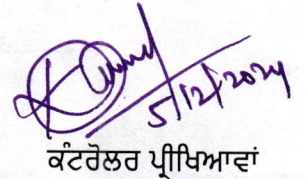 5/12/2024
ਕੰਟਰੋਲਰ ਪ੍ਰੀਖਿਆਵਾਂ